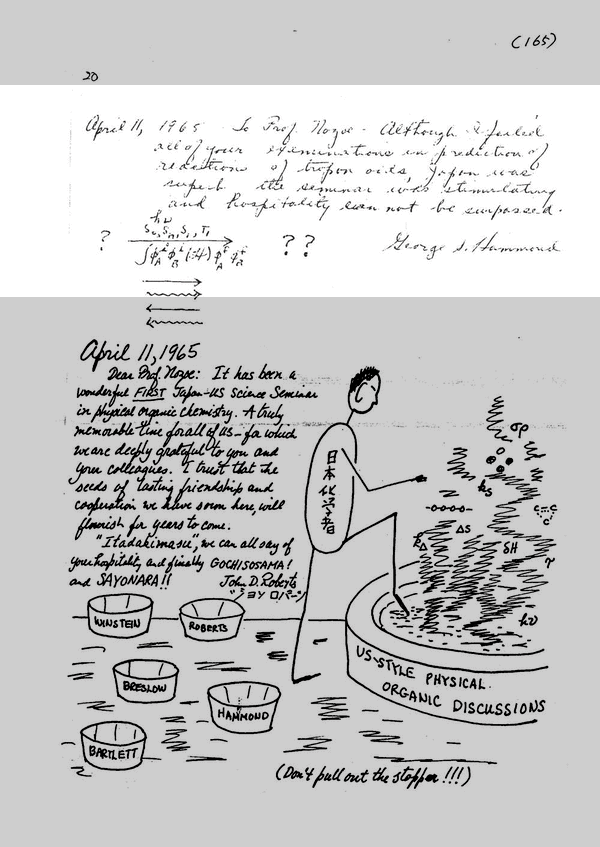 (165)
20
April 11, 1965 To Prof. Nozoe - Although I failed
all of your examinations in prediction of
reactions of tropon oids, Japan was
superb the seminar was stimulating
and hospitality can not be surpassed.
hν
? ? ?
George S. Hammond
April 11, 1965
Dear Prof. Nozoe: It has been a
wonderful FIRST Japan-US Science Seminar
in physical organic chemistry. A truly
memorable time for all of us - for which
we are deeply grateful to you and
your colleagues. I trust that the
seeds of lasting friendship and
cooperation we have sown here, will
flourish for years to come.
"Itadakimasu", we can all say of
your hospitality and finally GOCHISOSAMA!
and SAYONARA!! John D. Roberts
"ジョン ロバーツ"
日本化学者
σρ
ks
-oooo-
c=c
c
ΔS
kΔ
δH
τ
hν
WINSTEIN
ROBERTS
BRESLOW
HAMMOND
BARTLETT
US-STYLE PHYSICAL-
ORGANIC DISCUSSIONS
(Don't pull out the stopper !!!)